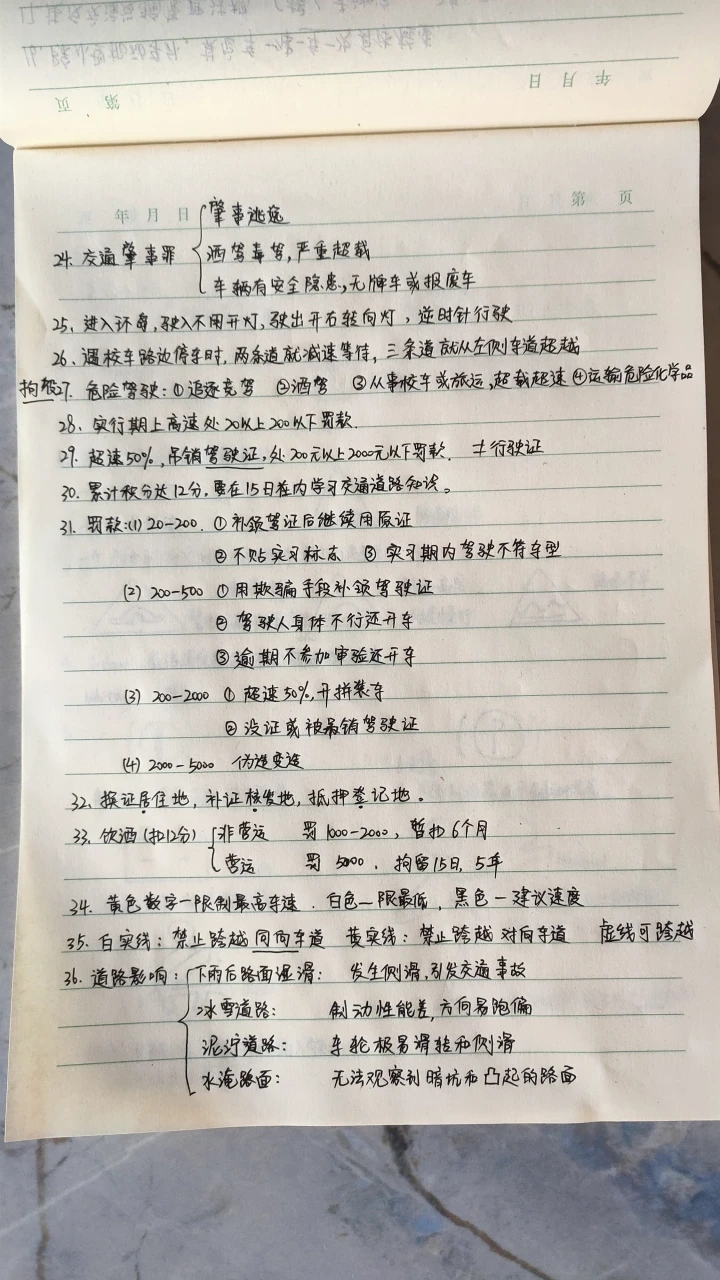 年 月 日
第 页
年 月 日
第 页
24. 交通肇事罪
肇事逃逸
酒驾毒驾,严重超载
车辆有安全隐患,无牌车或报废车
25. 进入环岛,驶入不用开灯,驶出开右转向灯,逆时针行驶
26. 遇校车路边停车时,两条道就减速等待,三条道就从左侧车道超越
拘役 27. 危险驾驶:①追逐竞驾 ②酒驾 ③从事校车或旅运,超载超速 ④运输危险化学品
28. 实行期上高速处20以上200以下罚款.
29. 超速50%,吊销驾驶证,处200元以上2000元以下罚款. ≠行驶证
30. 累计积分达12分,要在15日在内学习交通道路知识。
31. 罚款:(1) 20-200. ①补领驾证后继续用原证
②不贴实习标志 ③实习期内驾驶不符车型
(2) 200-500 ①用欺骗手段补领驾驶证
②驾驶人身体不行还开车
③逾期不参加审验还开车
(3) 200-2000 ①超速50%,开拼装车
②没证或被吊销驾驶证
(4) 2000-5000 伪造变造
32. 换证居住地,补证核发地,抵押登记地。
33. 饮酒(扣12分)
非营运 罚1000-2000,暂扣6个月
营运 罚5000,拘留15日,5年
34. 黄色数字—限制最高车速.白色—限最低,黑色—建议速度
35. 白实线:禁止跨越同向车道 黄实线:禁止跨越对向车道 虚线可跨越
36. 道路影响:
下雨后路面湿滑: 发生侧滑,引发交通事故
冰雪道路: 制动性能差,方向易跑偏
泥泞道路: 车轮极易滑转和侧滑
水淹路面: 无法观察到暗坑和凸起的路面